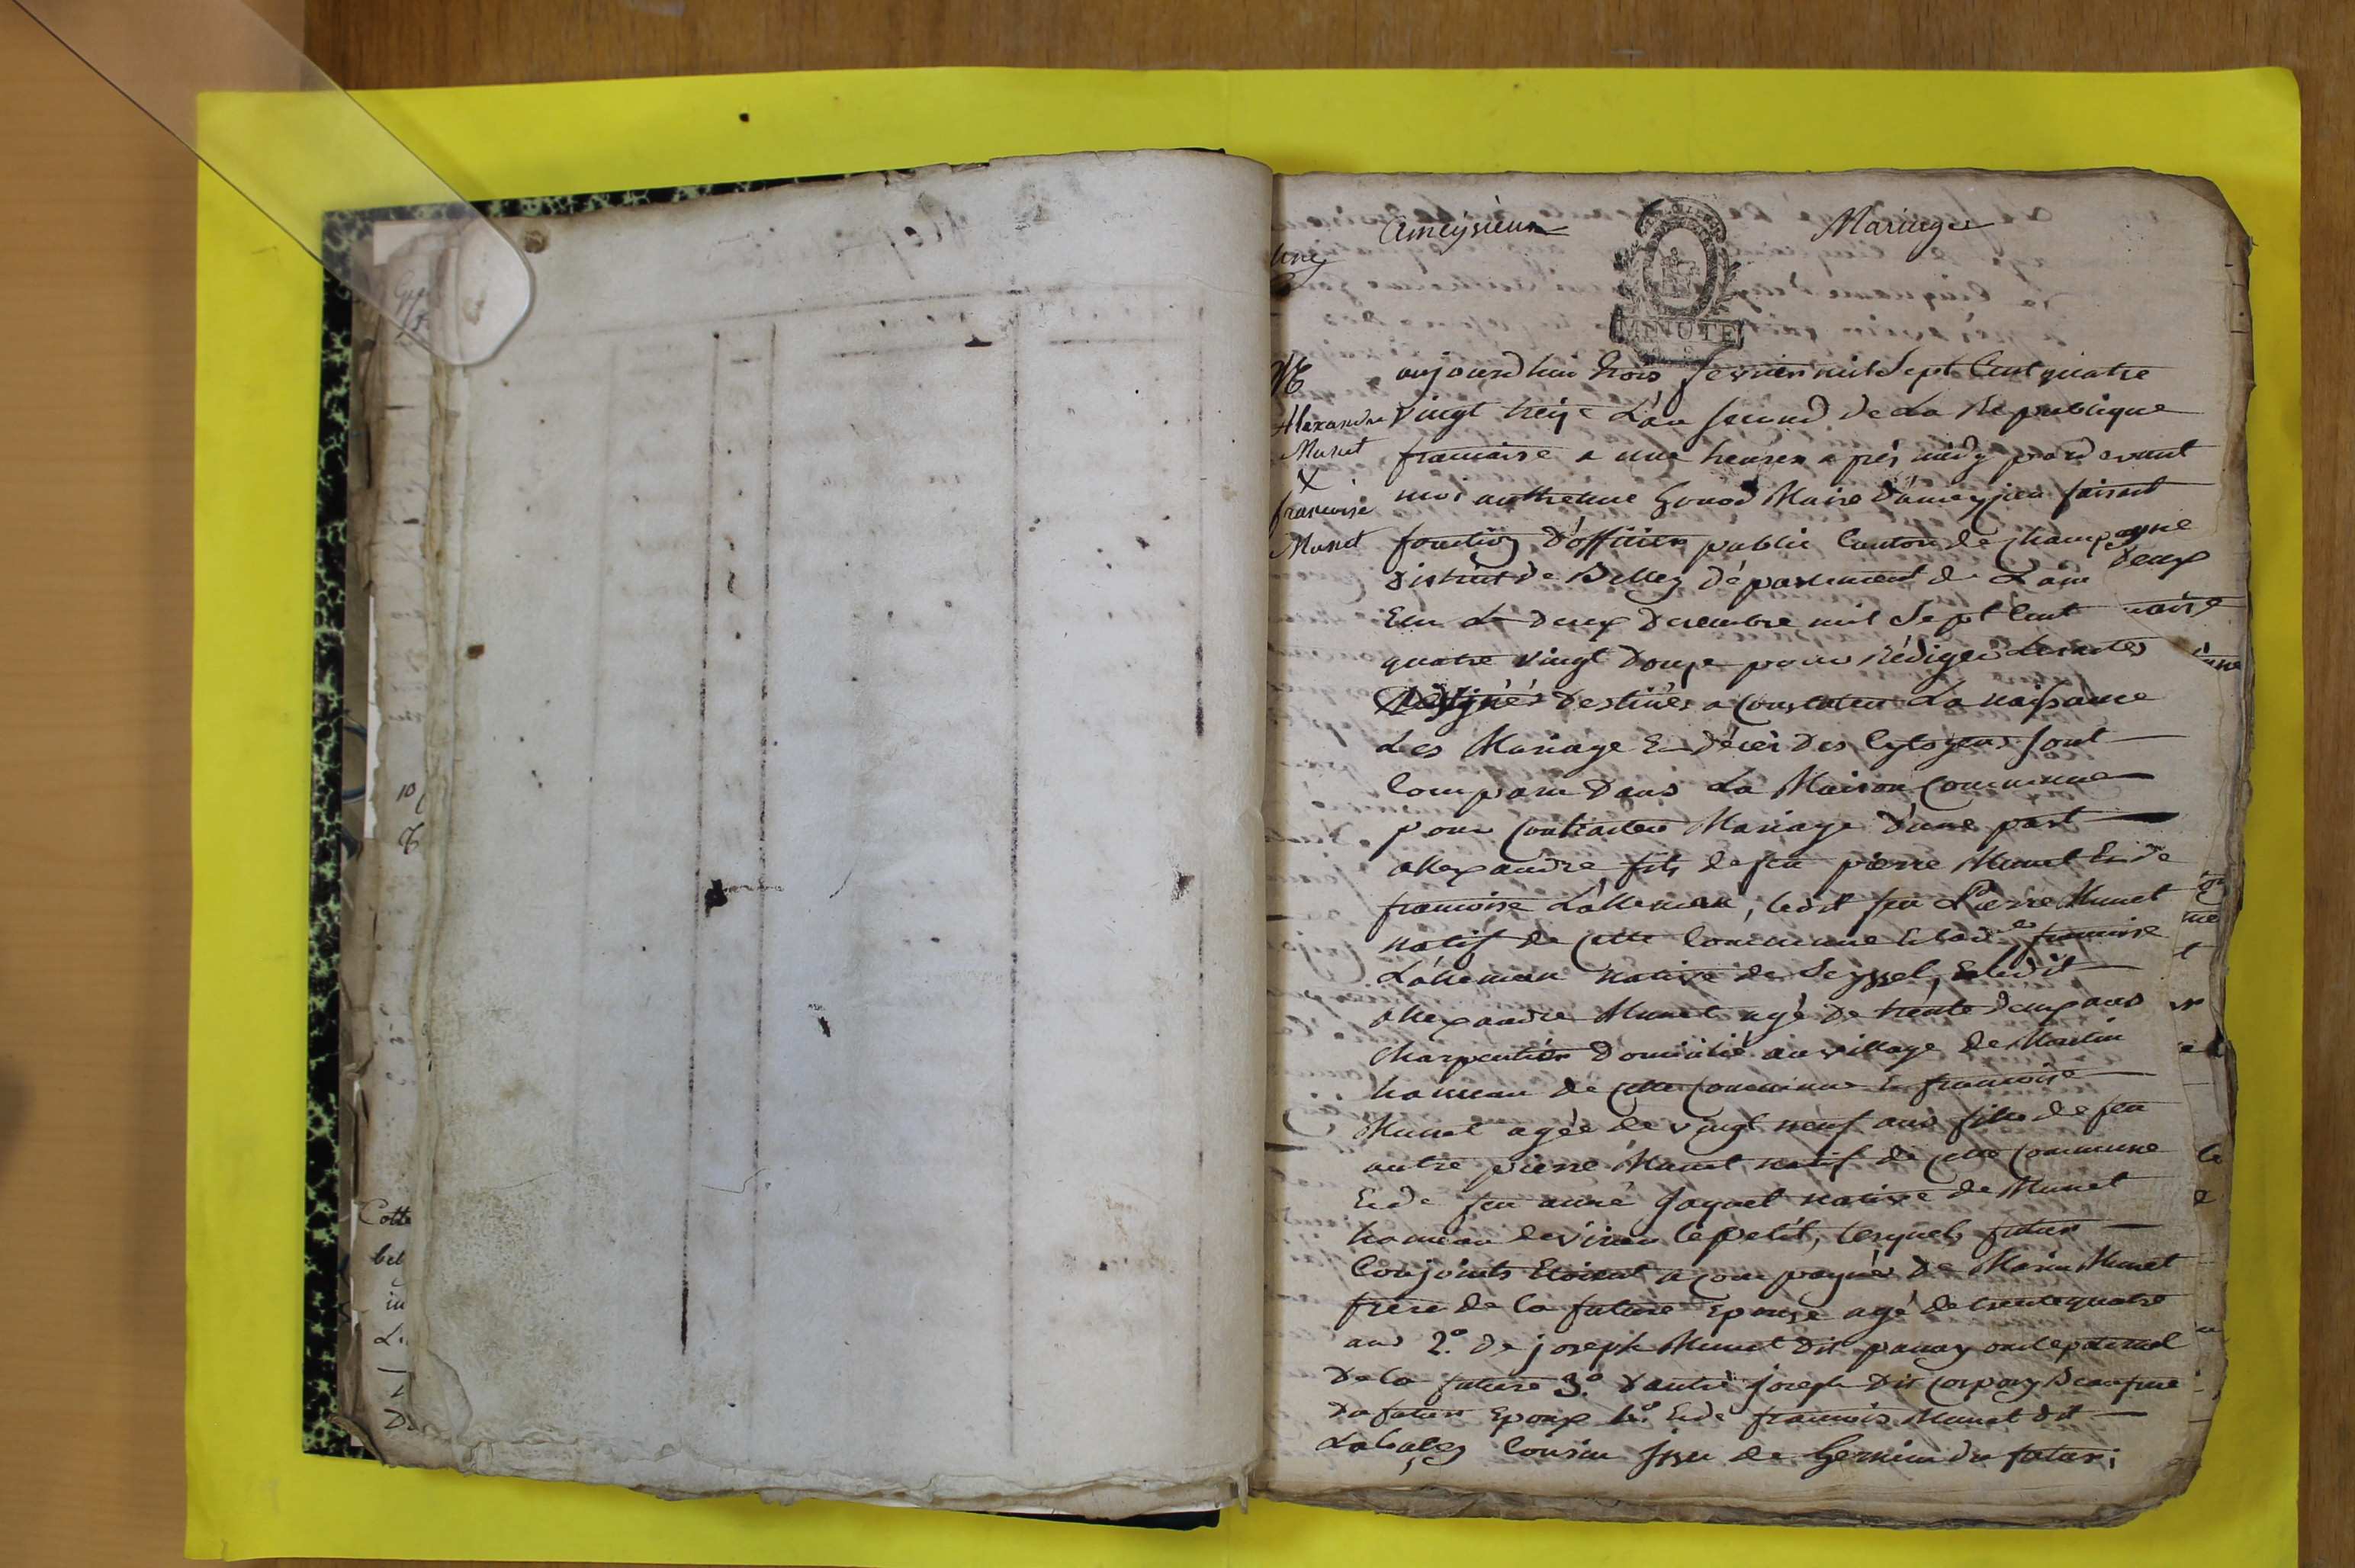 Ameysieux Mariages
une
MINUTE
N1
Alexandre
Munet
X
francoise
Munet
aujourdhui trois fevrier mil Sept Cent quatre
vingt treize L'an second de La Republique
francaise a une heures après midy pard evant
moi anthelme Gonod Maire D'ameyzieu faisant
fonction D'officier public Canton de Champagne
District de Belley département de L'ain
Elu Le deux Decembre mil Sept Cent
quatre vingt Douze pour Rédiger Les actes
Désignés Destinés a Constater La naissance
Les Mariage Et Décès Des Cytoyens sont
Comparu Dans La Maison Commune
pour Contracter Mariage D'une part
allexandre fils de feu pierre Munet Et de
francoise L'alleman, ledit feu Pierre Munet
natif de Cette Commune Et ladite francoise
L'alleman native de Seyssel, Et ledit
allexandre Munet agé de trente deux ans
Charpentier Domicilié au village de
hameau de Cette Commune Et francoise
Munet agée de vingt neuf ans fille de feu
autre pierre Munet natif de Cette Commune
Et de feu anne Jaquet native de Munet
hameau de virieu le petit, lesquels futur
Conjoints Etoient acompagnés de Marin Munet
frère de la future Epouse agé de trente quatre
ans 2.° De joseph Munet dit oncle paternel
De la future 3.° D'autre joseph Dit Beaufrere
Du futur Epoux 4.° Et de francois Munet dit
Cousin Issu de Germain du futur;
deux
Cotte